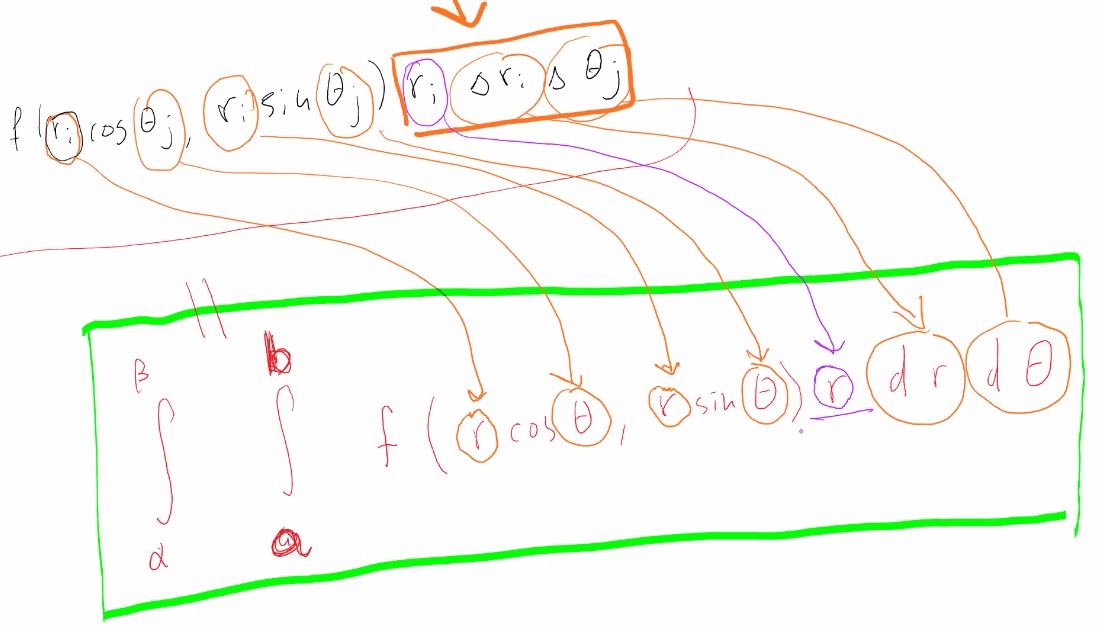 f(rᵢ cos θⱼ, rᵢ sin θⱼ) rᵢ Δrᵢ Δθⱼ
||
∫_α^β ∫_a^b f(r cos θ, r sin θ) r dr dθ